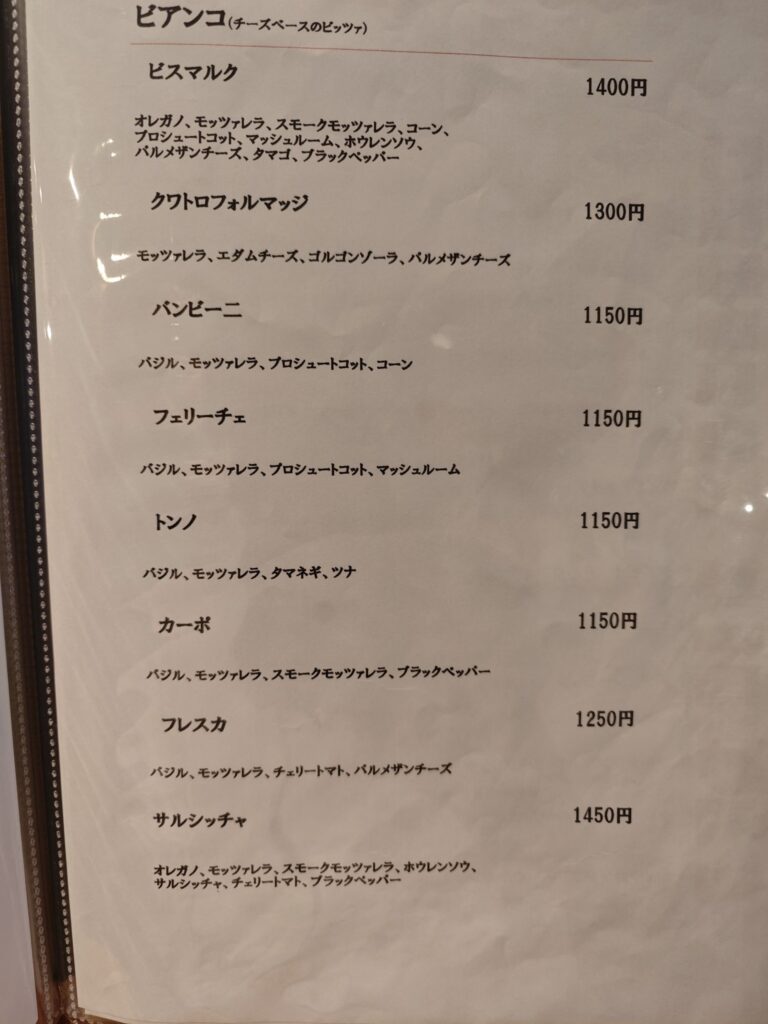 ビアンコ(チーズベースのピッツァ)
ビスマルク 1400円
オレガノ、モッツァレラ、スモークモッツァレラ、コーン、
プロシュートコット、マッシュルーム、ホウレンソウ、
パルメザンチーズ、タマゴ、ブラックペッパー
クワトロフォルマッジ 1300円
モッツァレラ、エダムチーズ、ゴルゴンゾーラ、パルメザンチーズ
バンビーニ 1150円
バジル、モッツァレラ、プロシュートコット、コーン
フェリーチェ 1150円
バジル、モッツァレラ、プロシュートコット、マッシュルーム
トンノ 1150円
バジル、モッツァレラ、タマネギ、ツナ
カーポ 1150円
バジル、モッツァレラ、スモークモッツァレラ、ブラックペッパー
フレスカ 1250円
バジル、モッツァレラ、チェリートマト、パルメザンチーズ
サルシッチャ 1450円
オレガノ、モッツァレラ、スモークモッツァレラ、ホウレンソウ、
サルシッチャ、チェリートマト、ブラックペッパー